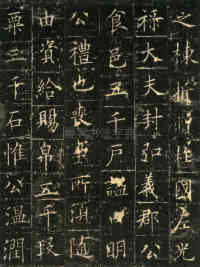 之棟㨂川柱國左光
祿大夫封弘義郡公
食邑五千戶諡曰明
公禮也喪事所須隨
由資給賜帛五千段
粟二千石惟公溫潤